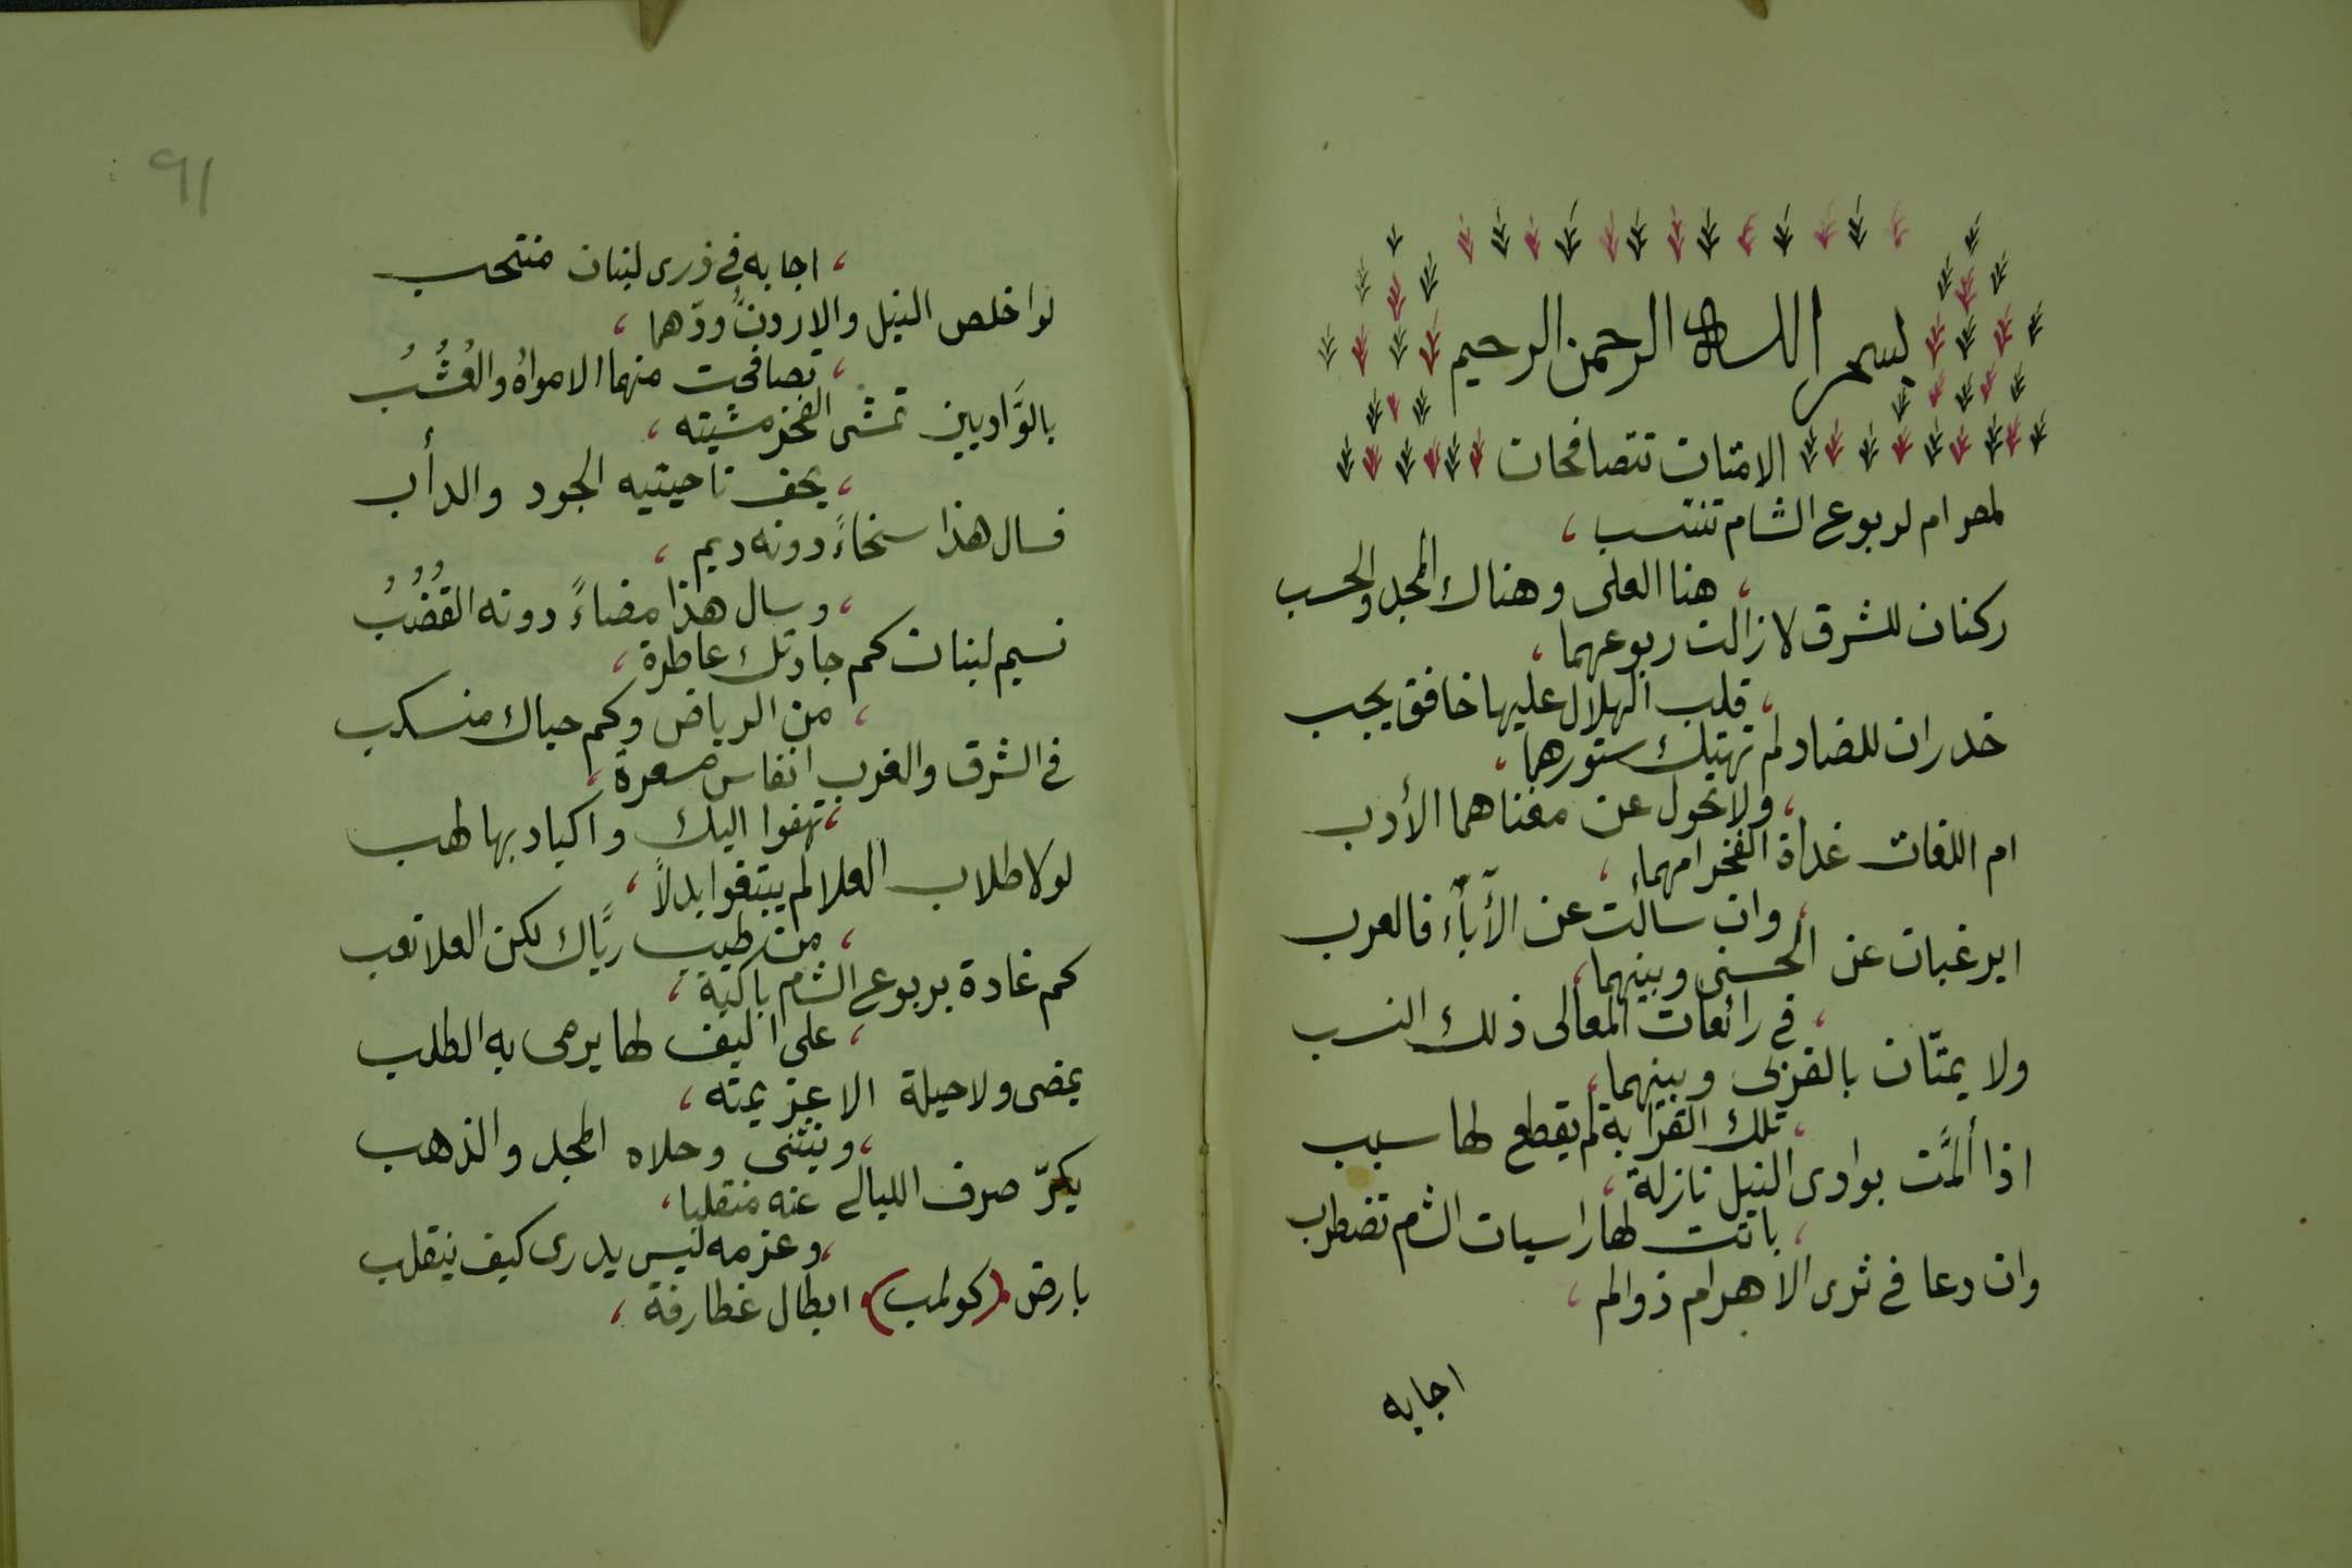 بسم اللــه الرحمن الرحيم
الامتان تتصافحان
لمصر ام لربوع الشام تنتسب ،
، هنا العلى وهناك المجد والحسب
ركنان للشرق لا زالت ربوعهما ،
، قلب الهلال عليها خافق يجب
خدران للضاد لم تهتك ستورهما ،
، ولا تحول عن مغناهما الأدب
ام اللغات غداة الفخر امهما ،
، وان سالت عن الأباء فالعرب
ايرغبان عن الحسنى وبينهما ،
، في رائعات المعالى ذلك النسب
ولا يمتّان بالقربى وبينهما ،
، تلك القرابة لم يقطع لها سبب
اذا ألمَّت بوادى النيل نازلة ،
، باتت لها راسيات الشم تضطرب
وان دعا في ثرى الاهرام ذوالم ،
اجابه
91
، اجابه في ذرى لبنان منتحب
لو اخلص النيل والاردنُّ ودّهما ،
، تصافحت منهما الامواهُ والعُشُبُ
بالوَّاديين تمشى الفخر مشيته ،
، يحف ناحيتيه الجود والدأب
فسال هذا سخاءً دونه ديم ،
، وسال هذا مضاءً دونه القُضُبُ
نسيم لبنان كم جادتك عاطرة ،
، من الرياض وكم حياك منسكب
في الشرق والغرب انفاس مسعرة ،
، تهفوا اليك واكباد بها لهب
لولا طلاب العلا لم يبتغوا بدلاً ،
، من طيب ريَّاك لكن العلا تعب
كم غادة بربوع الشام باكية ،
، على اليف لها يرمى به الطلب
يمضى ولا حيلة الا عزيمته ،
، وينثنى وحلاه المجد والذهب
يكرّ صرف الليالي عنه منقلبا ،
، وعزمه ليس يدرى كيف ينقلب
بارض (كولمب) ابطال غطارفة ،